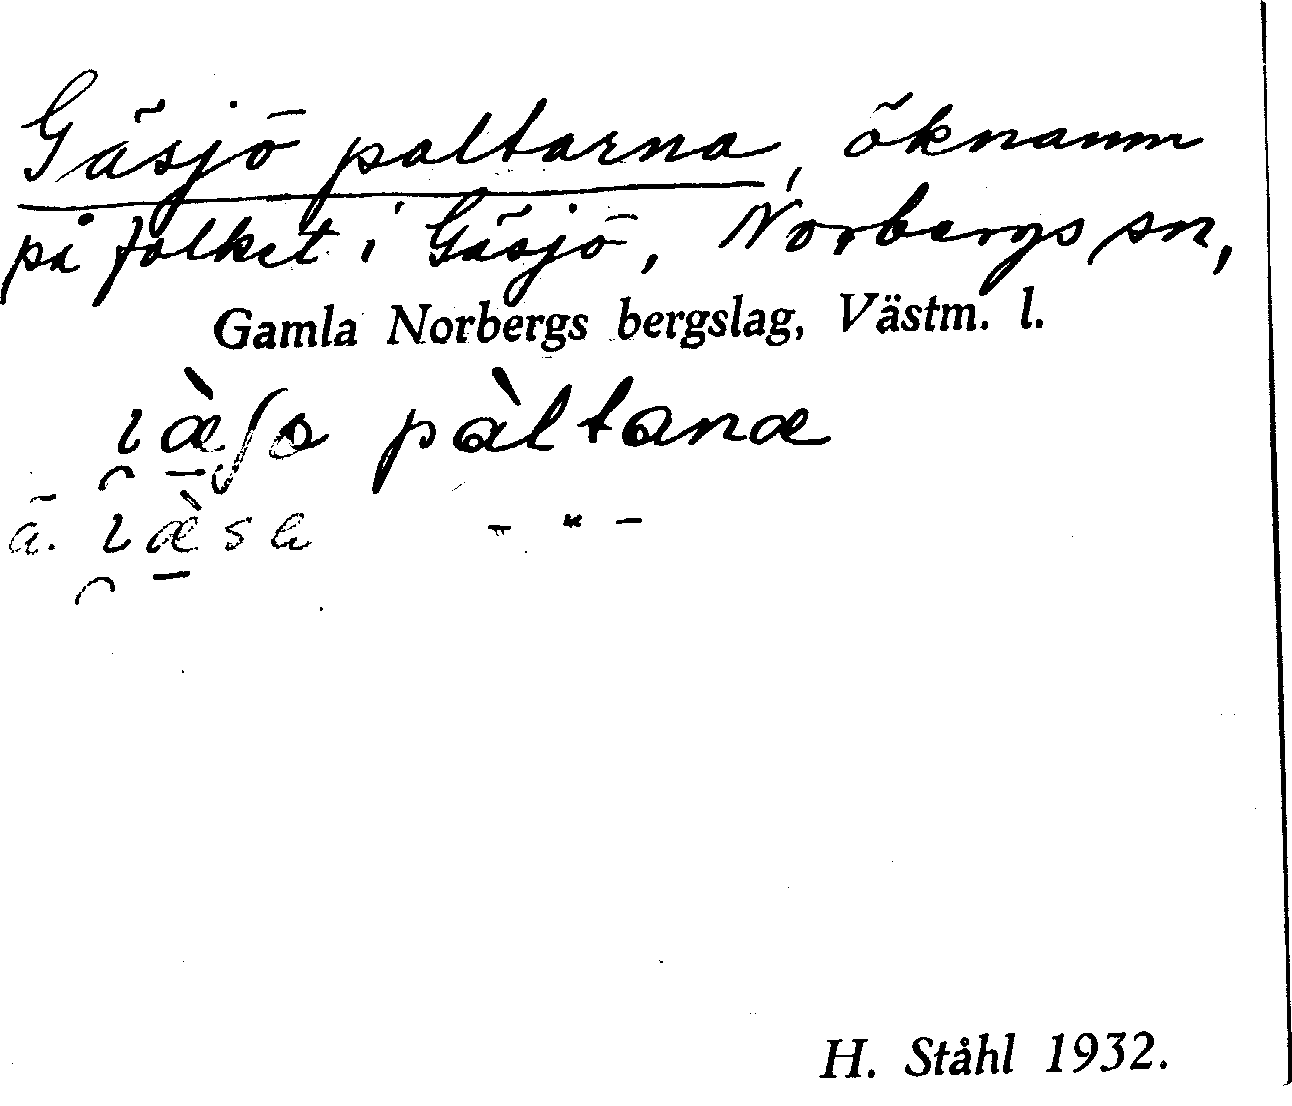 Gäsjö paltarna, öknamn
på folket i Gäsjö, Norbergs sn,
Gamla Norbergs bergslag, Västm. l.
pàltanæ
ä. – " –
H. Ståhl 1932.